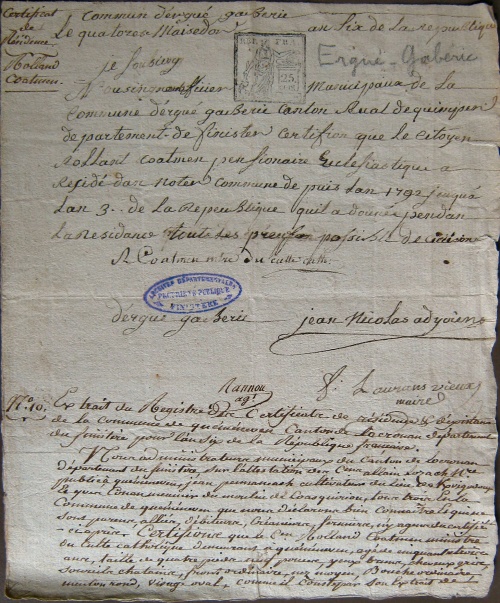 Certificat
de
Residence
Rolland
Coatmen
Commun d'ergué gaberic
Le quatorze Messidor an Six de la Republique
REP. FRA.
25
CENT.
Ergué-Gabéric
je Sousieg
Nousin officier Municipaux de la
Commune d'ergue gasberic Canton Rural de quimper
departement de finister Certifion que le Citoyen
Rolland Coatmen pensionaire Ecclesiastique a
Residé dan Notre Commune de puis lan 1792 jusqua
Lan 3.. de la Republique quil a donné pendan
la Residance toute les preuf possible de Civisme
R Coatmen mtre du culte cath.
ARCHIVES DÉPARTEMENTALES
PROPRIÉTÉ PUBLIQUE
FINISTÈRE
dergué gasberic jean Nicolas adjoient
Nannou
agt.
f. Laurans vieux
maire
N.o 10. Extrait du Registre des Certificats de résidence & d'existance
de la commune de quéménéven Canton de Locronan département
du finistre pour l'an Six de la République française.
Nous administrateurs municipaux du Canton de Locronan
département du finistre, sur l'attestation des Cens allain
public à quéménéven, jean cultivateur du lieu de
le quer Conan meunier du moulin de tous trois de la
Commune de quéménéven que nous déclarons bien Connaitre lequels
sont parens, alliés, débiteurs, Créanciers, fermiers, ni agens du certifié
Certifions que le Cen Rolland Coatmen ministre
du Culte catholique demeurant à quéménéven, agé de cinquante
ans, taille de quatre pieds huit pouces, yeux bruns, cheveux gris,
sourcils chatains, front ordinaire, nez moyen, bouche moyenne
menton rond, visage oval, comme il conste par son Extrait de